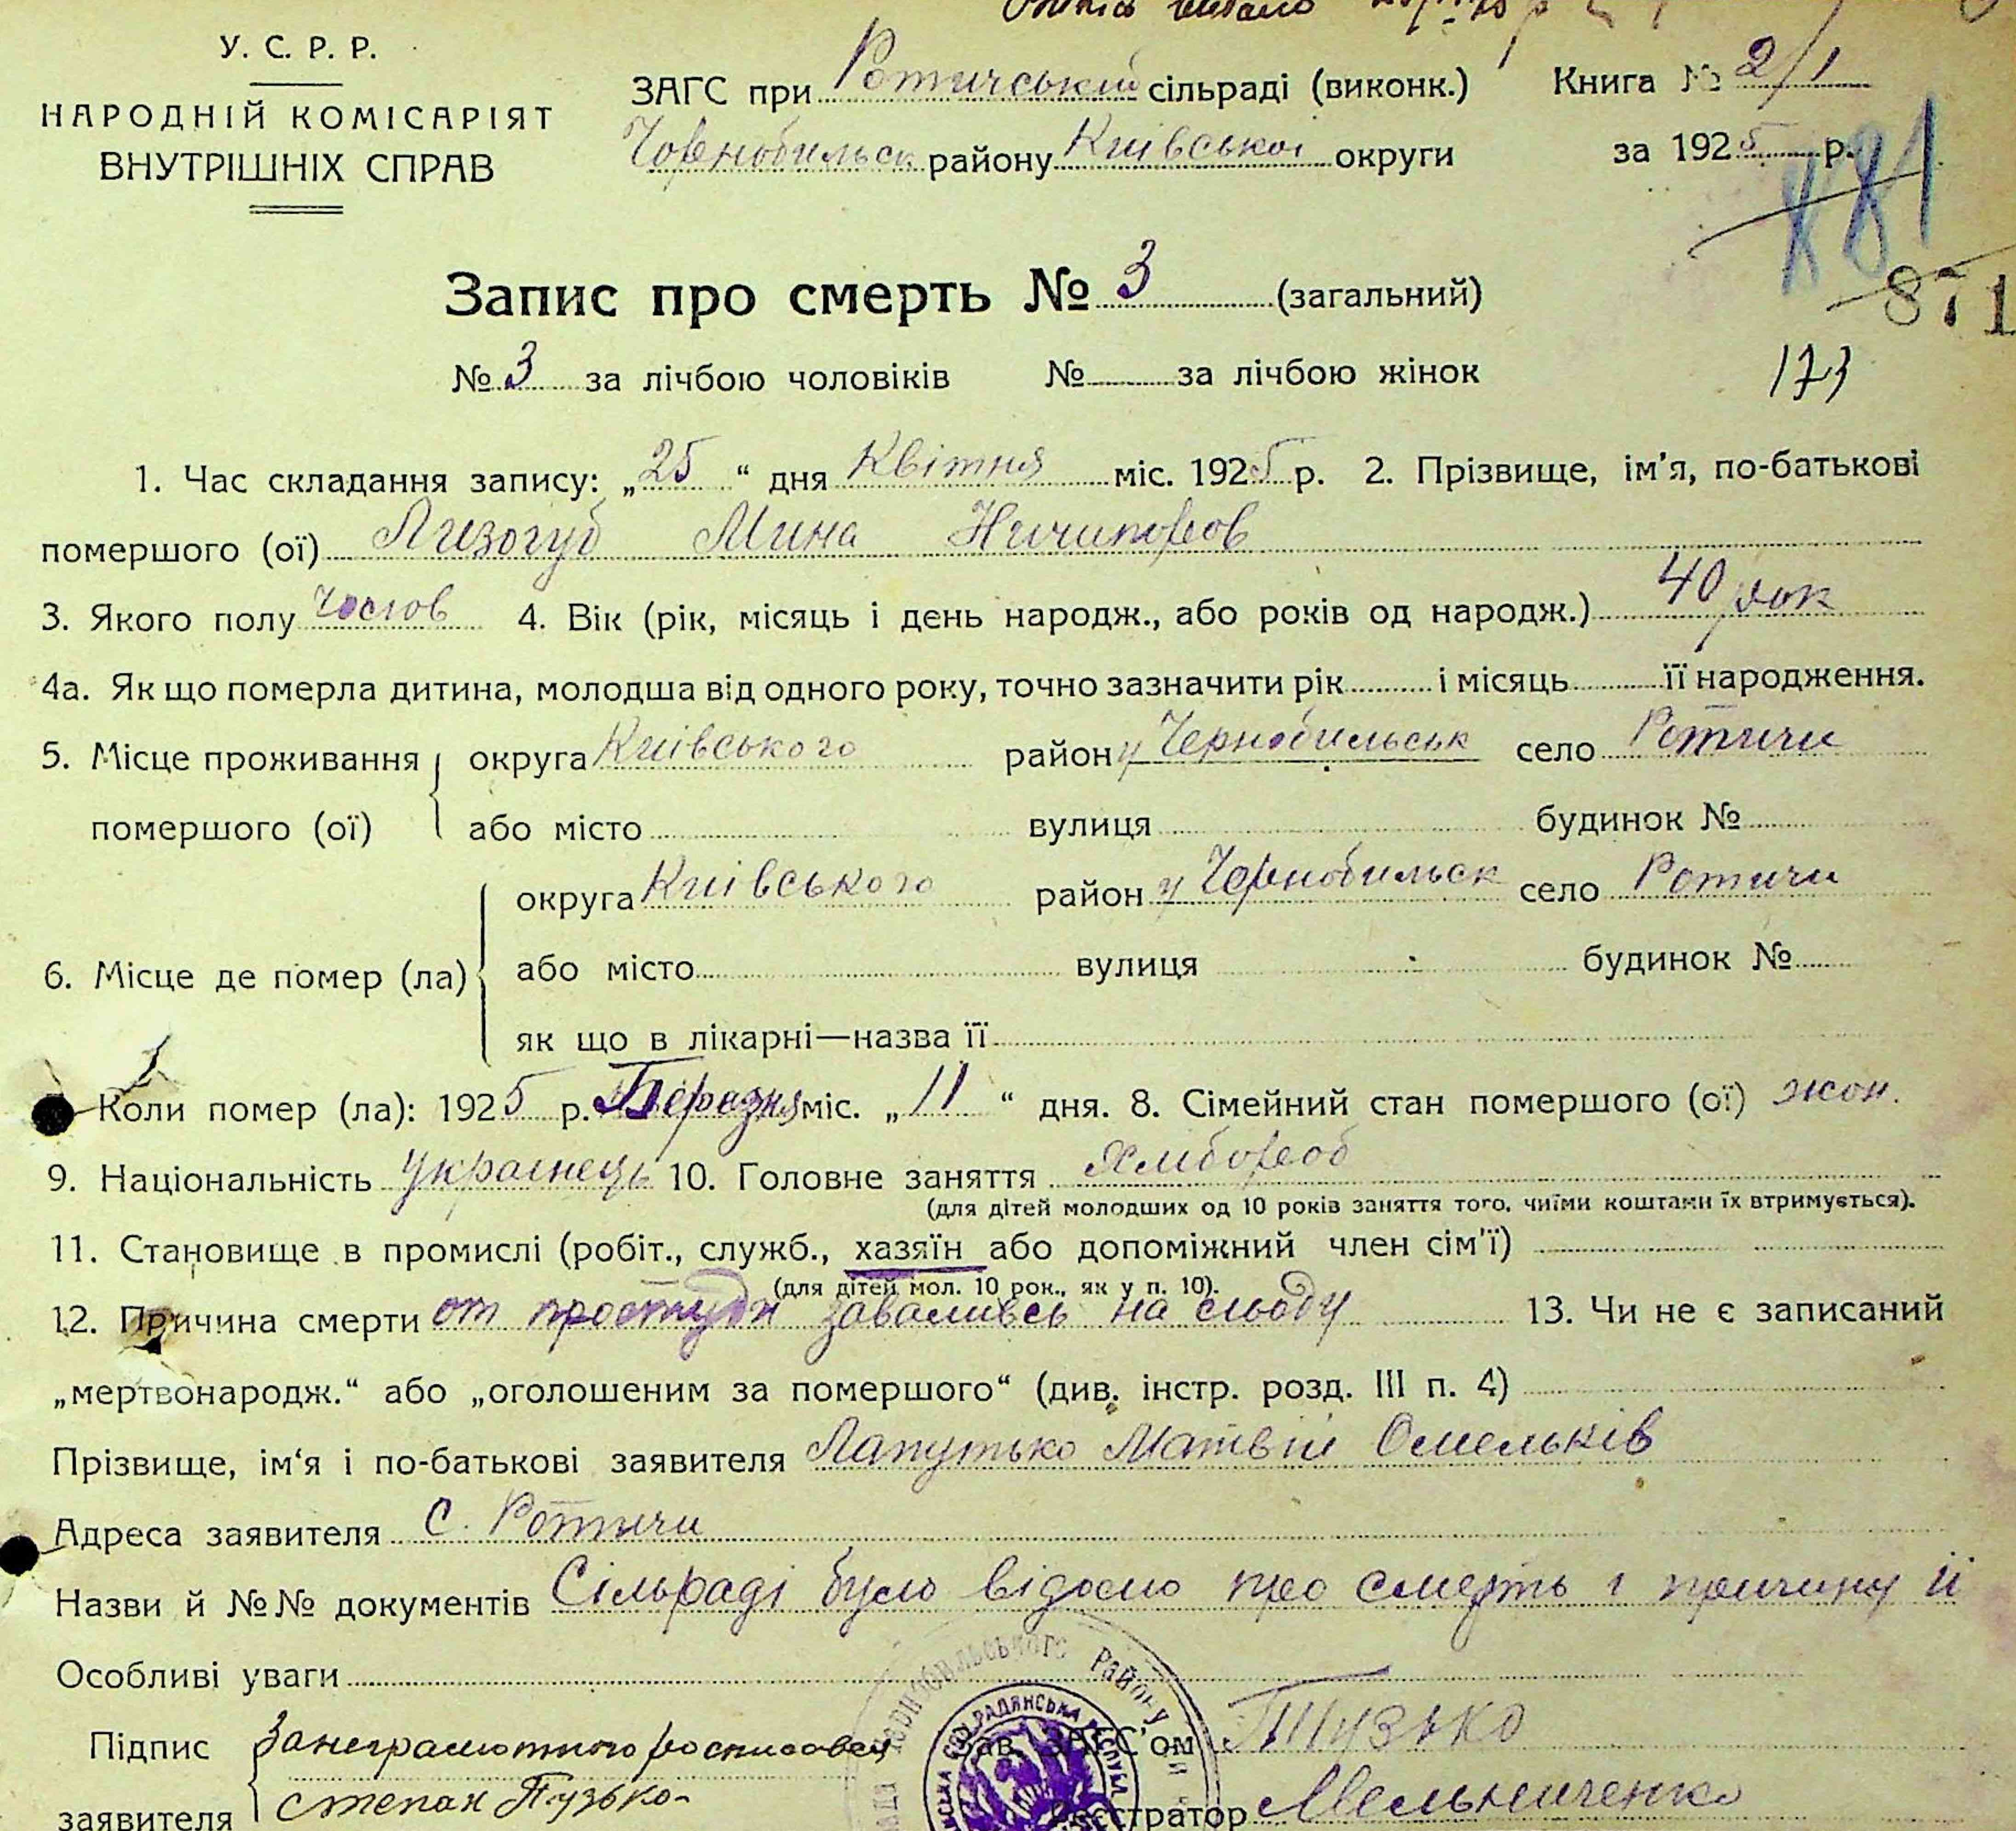 У. С. Р. Р.
НАРОДНІЙ КОМІСАРІЯТ
ВНУТРІШНІХ СПРАВ
ЗАГС при Ротичський сільраді (виконк.)
Чорнобильск району Київської округи
Книга № 2/1
за 1925 р.
К81
871
173
Запис про смерть № 3 (загальний)
№ 3 за лічбою чоловіків № за лічбою жінок
1. Час складання запису: „25“ дня Квітня міс. 1925 р. 2. Прізвище, ім'я, по-батькові
помершого (ої) Лизогуб Мина Ничипоров
3. Якого полу 4. Вік (рік, місяць і день народж., або років од народж.) 40 рок
4а. Як що померла дитина, молодша від одного року, точно зазначити рік і місяць її народження.
5. Місце проживання помершого (ої) округа Київського район у Чернобильськ село Ротичи
або місто вулиця будинок №
6. Місце де помер (ла) округа Київського район у Чорнобильск село Ротичи
або місто вулиця будинок №
як що в лікарні—назва її
Коли помер (ла): 1925 р. Березня міс. „11“ дня. 8. Сімейний стан помершого (ої) жон.
9. Національність Українець 10. Головне заняття Хлибороб
(для дітей молодших од 10 років заняття того, чиїми коштами їх втримується).
11. Становище в промислі (робіт., служб., хазяїн або допоміжний член сім'ї)
(для дітей мол. 10 рок., як у п. 10).
12. Причина смерти от простуди заваливсь на льоду 13. Чи не є записаний
„мертвонародж.“ або „оголошеним за помершого“ (див. інстр. розд. III п. 4)
Прізвище, ім'я і по-батькові заявителя Лапутько Матвій Омельків
Адреса заявителя С. Ротичи
Назви й №№ документів Сільраді було відомо про смерть і причину її
Особливі уваги
Підпис заявителя За неграмотного росписався
Степан Пузько
Зав. ЗАГС'ом Пузько
Реєстратор Мельниченко